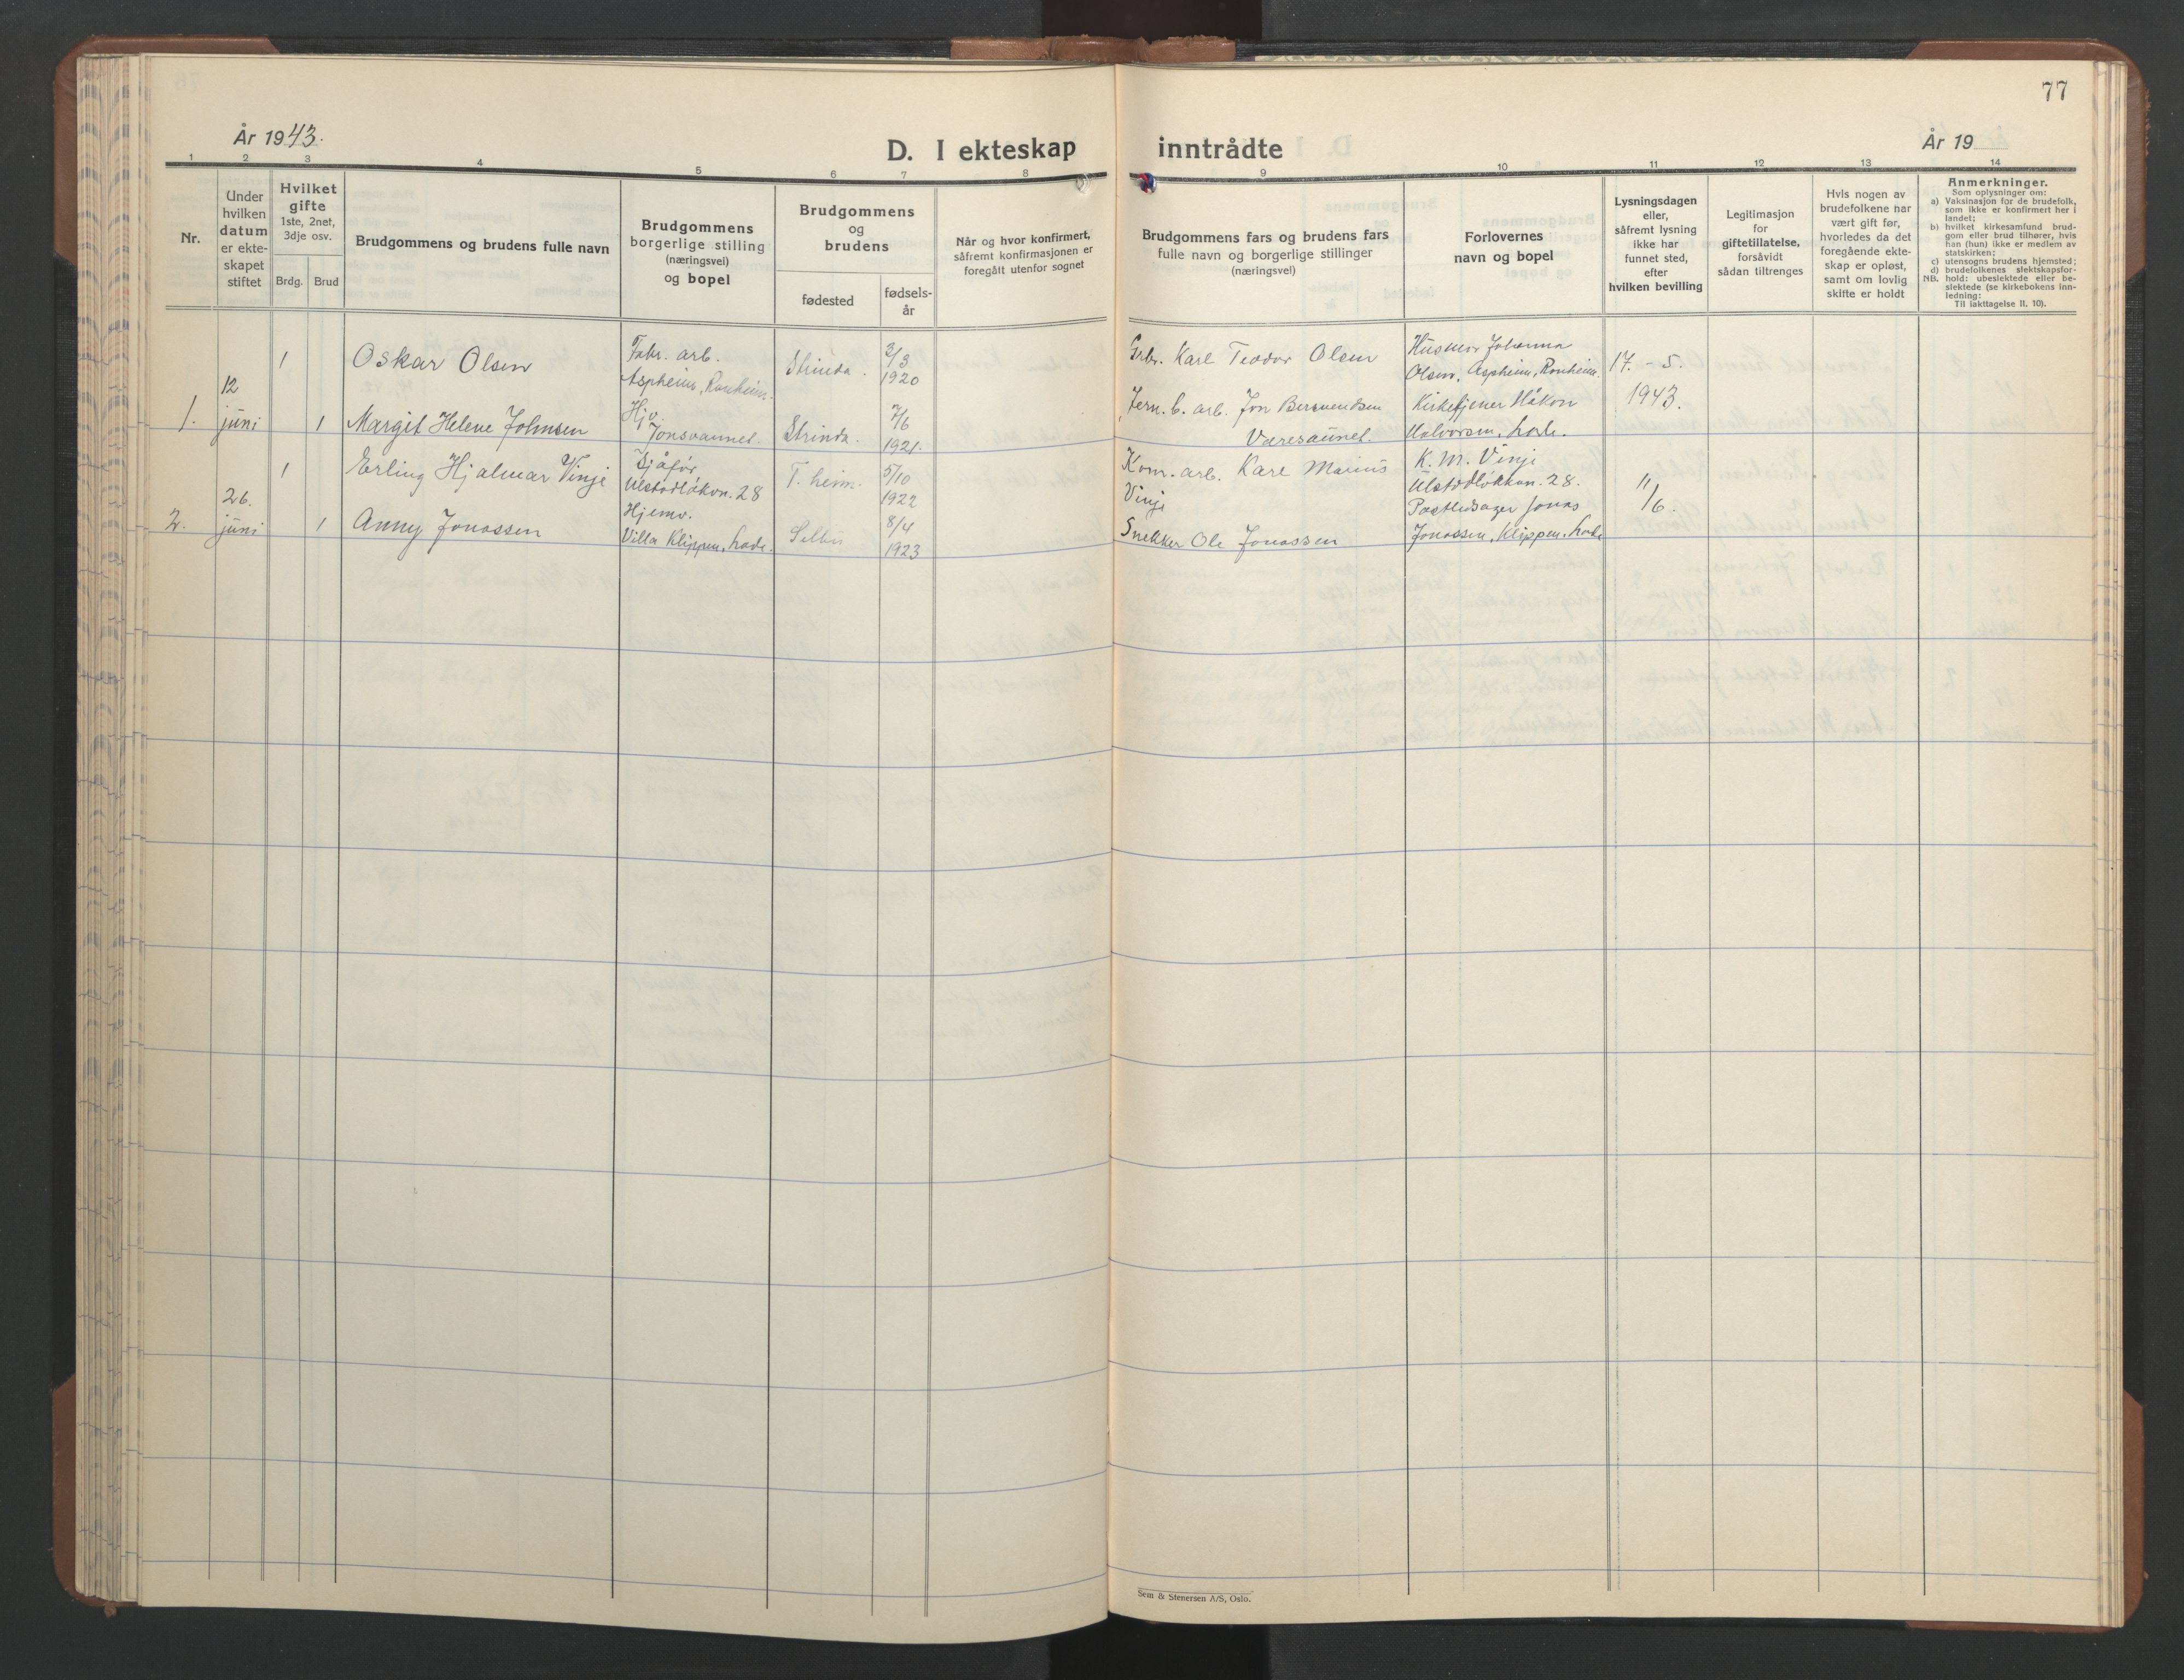 77
År 1943.
D. I ekteskap inntrådte
År 19
1 2 3 4 5 6 7 8 9 10 11 12 13 14
Nr.
Under
hvilken
datum
er ekte-
skapet
stiftet
Hvilket
gifte
1ste, 2net,
3dje osv.
Brdg. Brud
Brudgommens og brudens fulle navn
Brudgommens
borgerlige stilling
(næringsvei)
og bopel
Brudgommens
og
brudens
fødested
fødsels-
år
Når og hvor konfirmert,
såfremt konfirmasjonen er
foregått utenfor sognet
Brudgommens fars og brudens fars
fulle navn og borgerlige stillinger
(næringsvei)
Forlovernes
navn og bopel
Lysningsdagen
eller,
såfremt lysning
ikke har
funnet sted,
efter
hvilken bevilling
Legitimasjon
for
giftetillatelse,
forsåvidt
sådan tiltrenges
Hvis nogen av
brudefolkene har
vært gift før,
hvorledes da det
foregående ekte-
skap er opløst,
samt om lovlig
skifte er holdt
Anmerkninger.
Som oplysninger om:
a) Vaksinasjon for de brudefolk,
som ikke er konfirmert her i
landet;
b) hvilket kirkesamfund brud-
gom eller brud tilhører, hvis
han (hun) ikke er medlem av
statskirken;
c) utensogns brudens hjemsted;
d) brudefolkenes slektskapsfor-
NB. hold: ubeslektede eller be-
slektede (se kirkebokens inn-
ledning:
Til iakttagelse II. 10).
1.
12
juni
1
Oskar Olsen
Fabr. arb.
Aspheim, Ranheim.
Strinda.
3/3
1920
Karl Teodor Olsen
Husmor Johanna
Olsen, Aspheim, Ranheim.
17. - 5.
1943.
1
Margit Helene Johnsen
Hjv.
Jonsvannet.
Strinda.
7/6
1921.
Jern. b. arb. Jon
Væresaunet.
Kirketjener Håkon
Halvorsen, Lade.
2.
26.
juni
1
Erling Hjalmar Vinje
Sjåfør
28
T. heim.
5/10
1922
Kom. arb. Karl Marius
Vinje
K. M. Vinje
28.
11/6.
1
Anny Jonassen
Hjemv.
Villa Klippen, Lade.
Selbu
8/4
1923
Snekker Ole Jonassen
Jonas
Jonassen, Klippen, Lade
Sem & Stenersen A/S, Oslo.